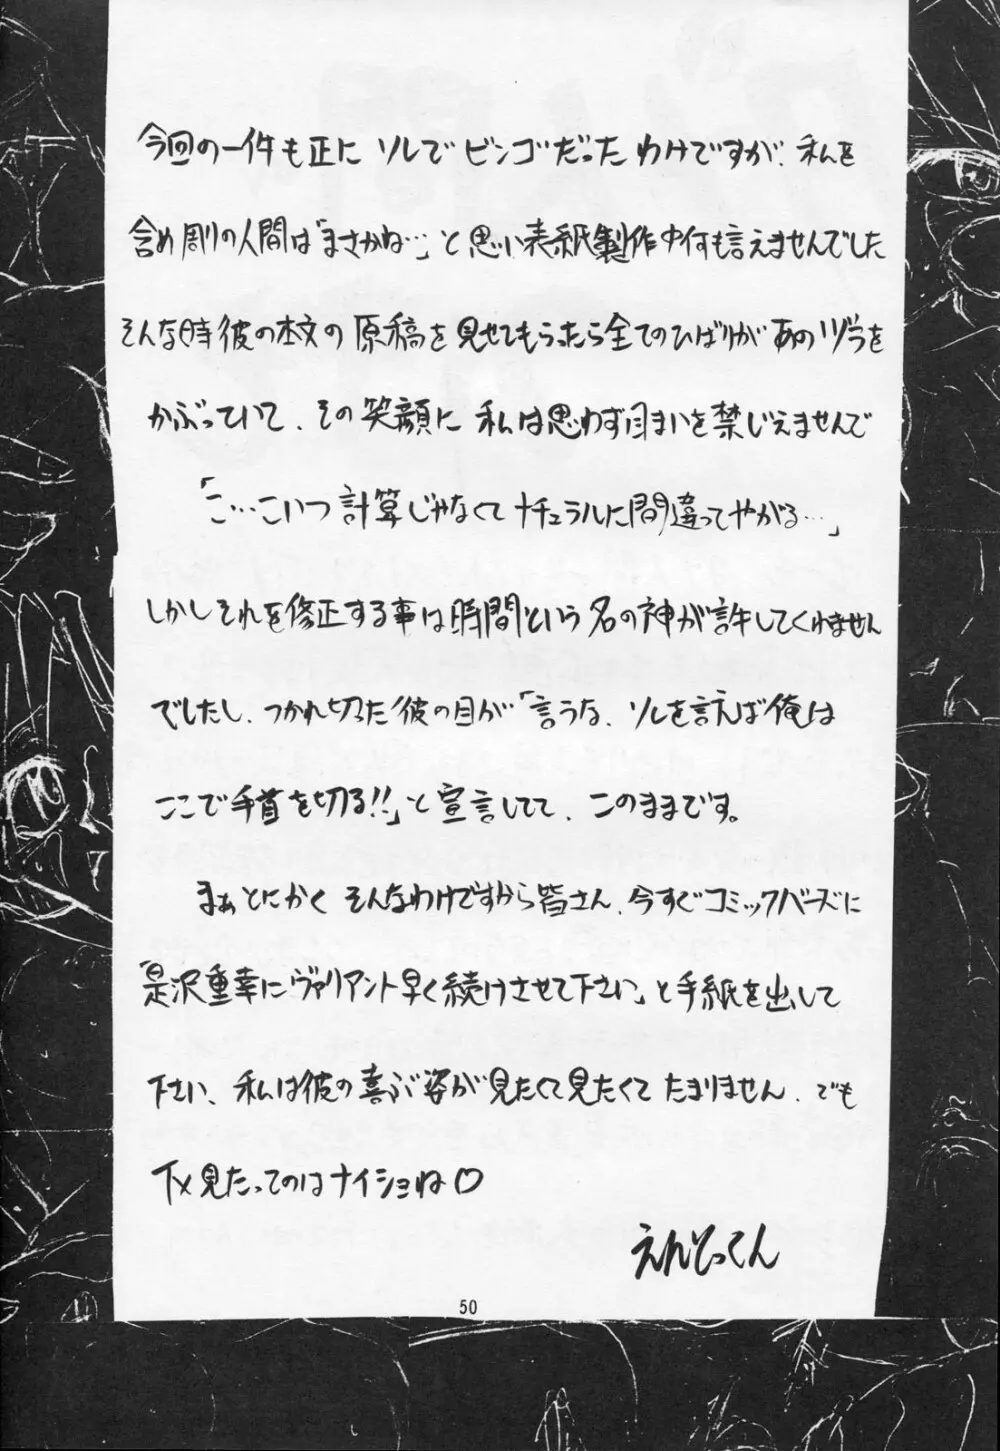 今回の一件も正に ソレで ビンゴだったわけですが、私を
含め周りの人間は「まさかね…」と思い表紙製作中何も言えませんでした
そんな時彼の本文の原稿を見せてもらったら全てのひばりがあのヅラを
かぶっていて、その笑顔に 私は思わず目まいを禁じえませんで
「こ…こいつ計算じゃなくてナチュラルに間違ってやがる…」
しかしそれを修正する事は時間という名の神が許してくれません
でしたし、つかれ切った彼の目が「言うな、ソレを言えば俺は
ここで手首を切る!!」と宣言してて、このままです。
まぁとにかく そんなわけですから皆さん、今すぐコミックバーズに
「是沢重幸にヴァリアント早く続けさせて下さい」と手紙を出して
下さい、私は彼の喜ぶ姿が見たくて見たくて たまりません、でも
下x見たってのはナイショね♡
えんどってん
50